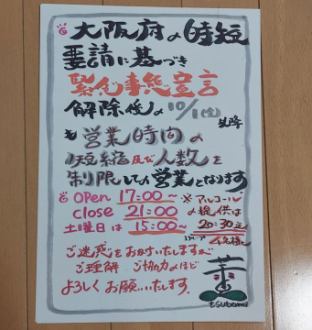 大阪府の時短
要請に基づき
緊急事態宣言
解除後の10/1(金)以降
も営業時間の
短縮及び人数を
制限しての営業となります
OPEN 17:00〜
close 21:00
土曜日は 15:00〜
※アルコール
の提供は
20:30まで
ご迷惑をおかけいたしますが
ご理解 ご協力のほど
よろしくお願いいたします.